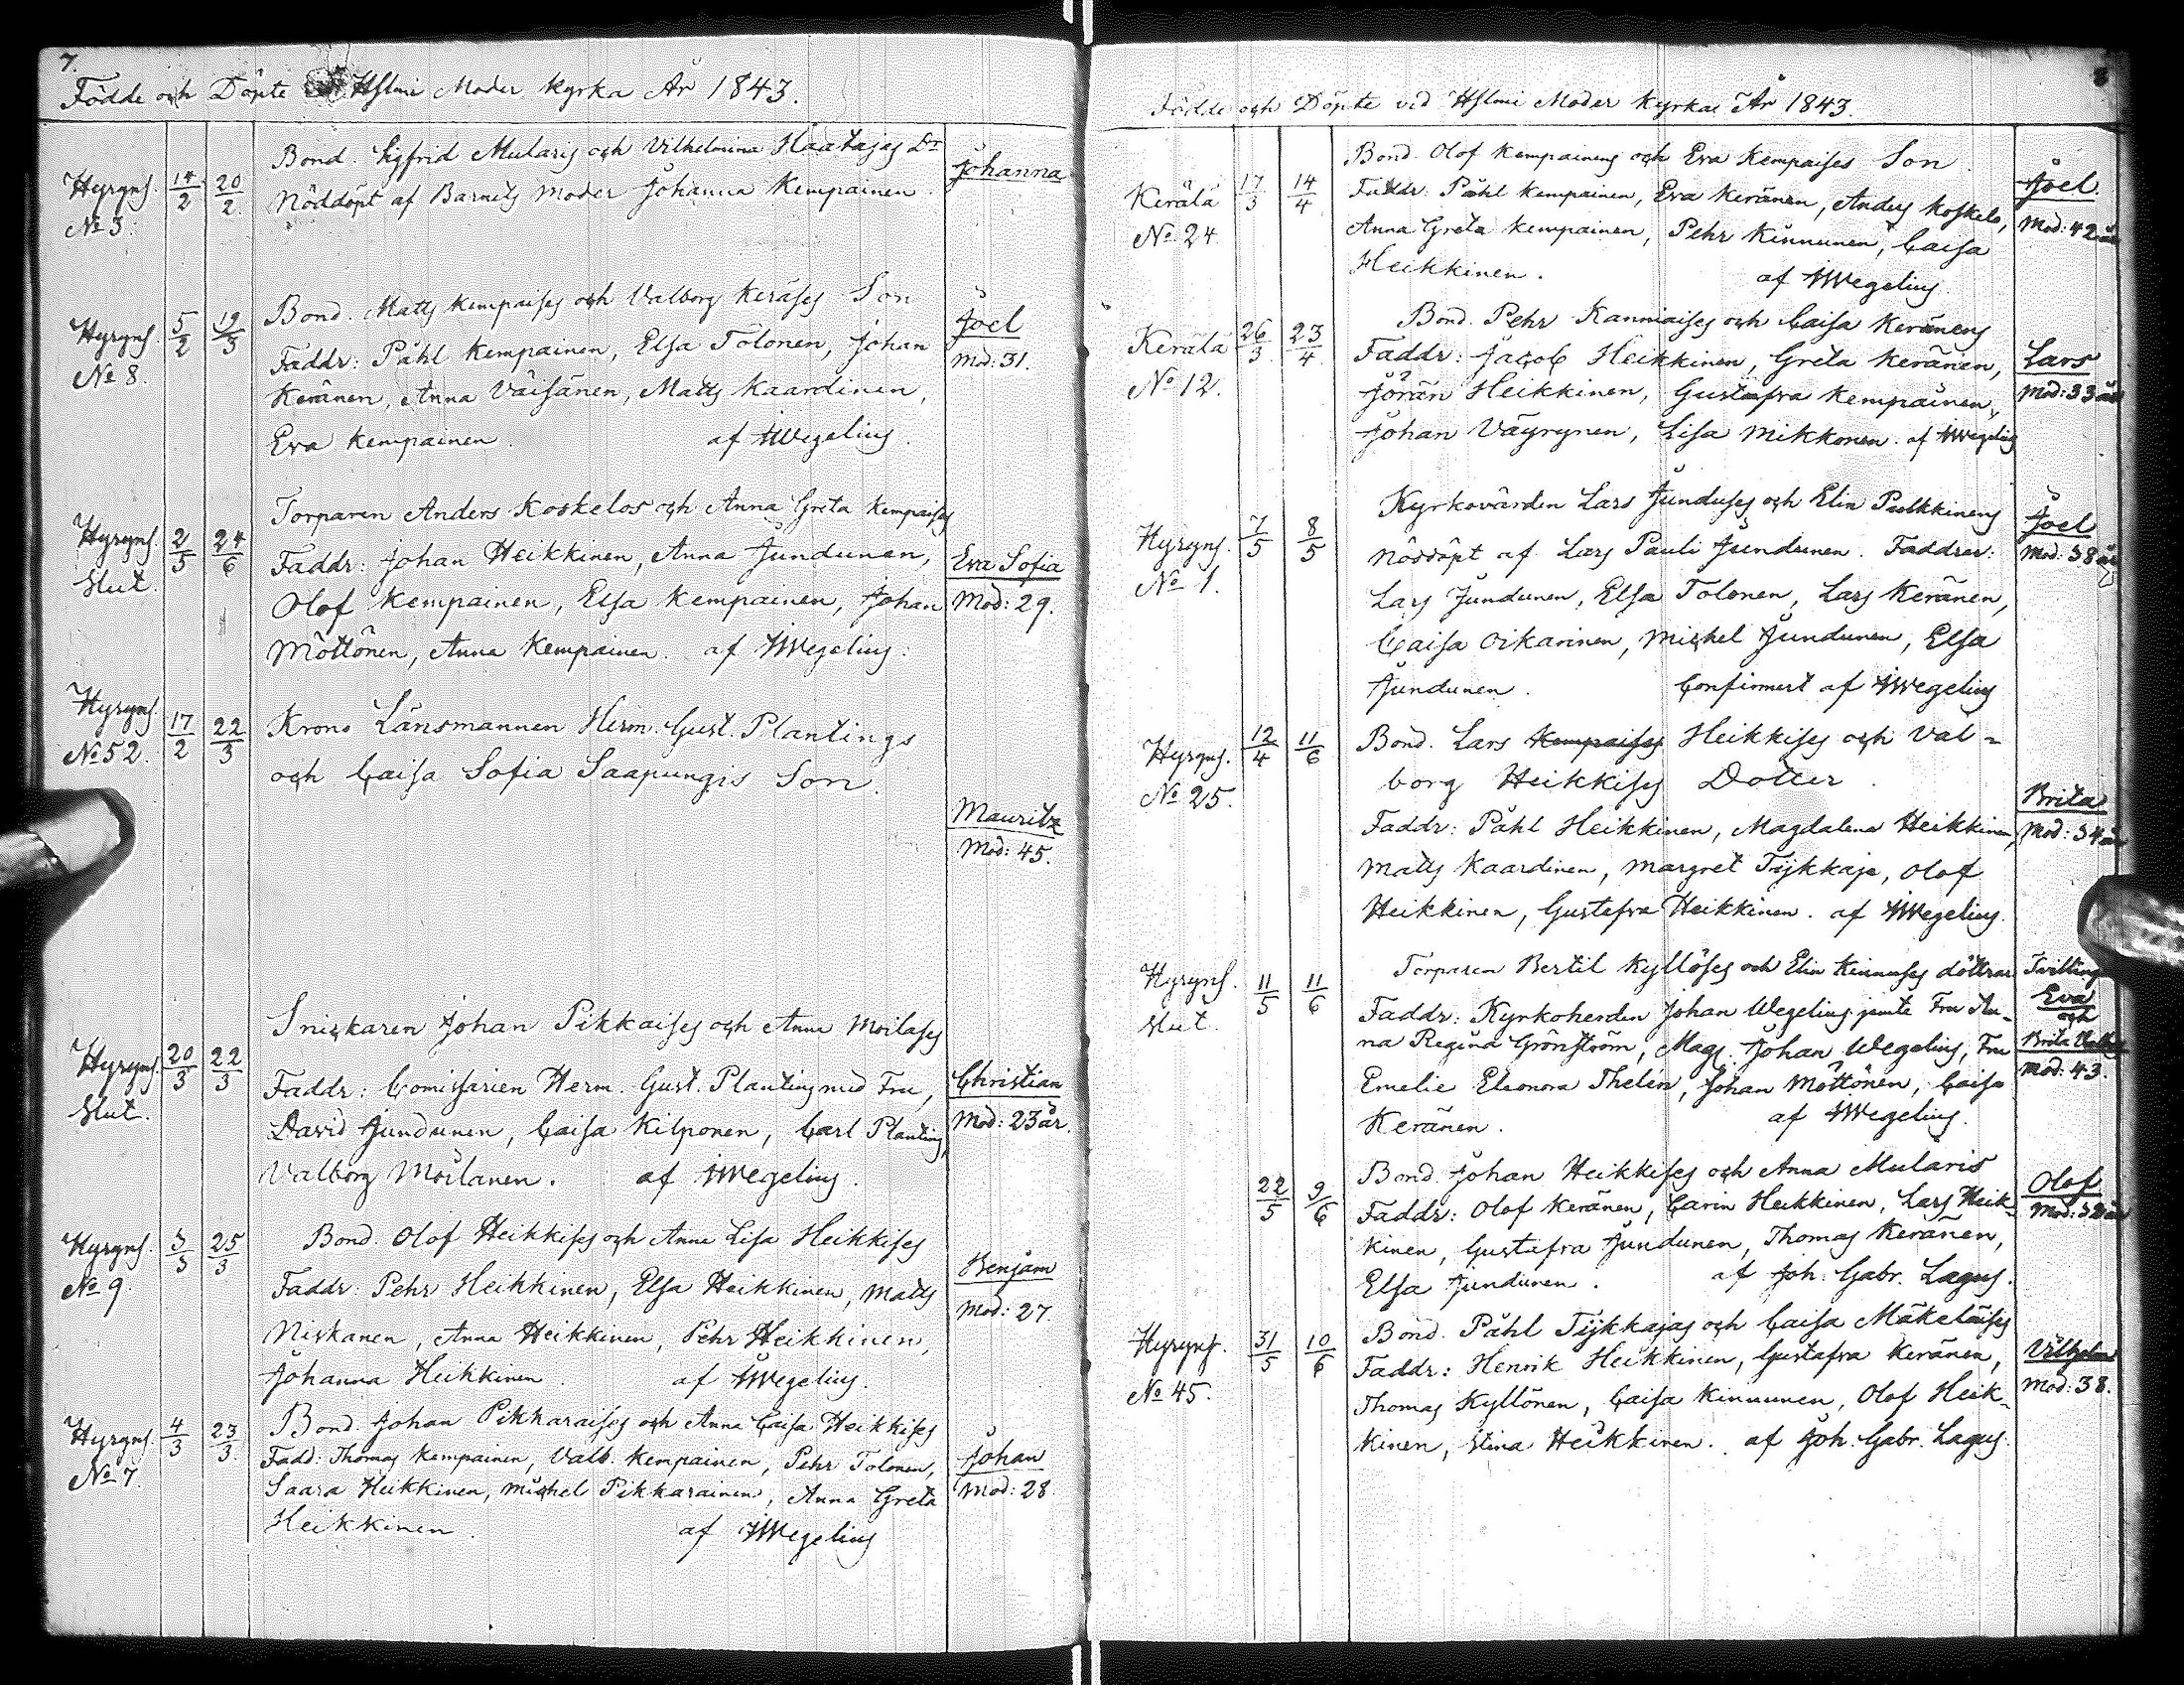 7.
Födde och Döpte Hslmi Moder Kyrka År 1843.
Bond. Sigfrid Mularis och Vilhelmina Haatajas Dr
Johanna
Hyryns.
14/2
20/2
Nöddöpt af Barnets Moder Johanna Kempainen
No 3.
Bond. Matts Kempaises och Valborg Keräses Son
Joel
Hyryns.
5/2
19/3
Faddr: Påhl Kempainen, Elsa Tolonen, Johan
Mod: 31.
No 8.
Keränen, Anna Väisänen, Matts Kaardinen,
Eva Kempainen. af JWegelius.
Torparen Anders Koskelos och Anna Greta Kempaises
Hyryns.
2/5
24/6
Faddr: Johan Heikkinen, Anna Jundunen,
Eva Sofia
Slut.
Olof Kempainen, Elsa Kempainen, Johan
Mod: 29.
Möttönen, Anna Kempainen. af JWegelius.
Hyryns.
17/2
22/3
Krono Länsmannen Herm. Gust. Plantings
No 52.
och Caisa Sofia Saapungis Son.
Mauritz
Mod: 45.
Snickaren Johan Pikkaises och Anna Moilases
Hyryns.
20/3
22/3
Faddr: Comissarien Herm. Gust. Planting med Fru,
Christian
Slut.
David Jundunen, Caisa Kilponen, Carl Planting,
Mod: 23 år.
Valborg Moilanen. af JWegelius.
Bond. Olof Heikkises och Anna Lisa Heikkises
Hyryns.
3/3
25/3
Benjam
No 9.
Faddr: Pehr Heikkinen, Elsa Heikkinen, Matts
Mod: 27.
Niskanen, Anna Heikkinen, Pehr Heikkinen,
Johanna Heikkinen. af JWegelius.
Bond. Johan Pikkaraises och Anna Caisa Heikkises
Hyryns.
4/3
23/3
Fadd: Thomas Kempainen, Valb. Kempainen, Pehr Tolonen,
Johan
No 7.
Saara Heikkinen, Michel Pikkarainen, Anna Greta
Mod: 28
Heikkinen. af JWegelius
8
Födde och Döpte vid Hslmi Moder Kyrka År 1843.
Bond. Olof Kempainens och Eva Kempaises Son
Joel.
Kerälä
17/3
14/4
Faddr: Påhl Kempainen, Eva Keränen, Anders Koskelo,
Mod: 42 år
No 24.
Anna Greta Kempainen, Pehr Kinnunen, Caisa
Heikkinen. af JWegelius.
Bond. Pehr Kanniaises och Caisa Keränens
Kerälä
26/3
23/4
Faddr: Jacob Heikkinen, Greta Keränen,
Lars
No 12.
Jöran Heikkinen, Gustafva Kempainen,
Mod: 33 år
Johan Väyrynen, Lisa Mikkonen. af JWegelius
Kyrkovärden Lars Junduses och Elin Pulkkinens
Joel
Hyryns.
7/5
8/5
Nöddöpt af Lars Pauli Jundunen. Faddrar:
Mod: 38 år
No 1.
Lars Jundunen, Elsa Tolonen, Lars Keränen,
Caisa Oikarinen, Michel Jundunen, Elsa
Jundunen. Confirmert af JWegelius
Hyryns.
12/4
11/6
Bond. Lars Kempaises Heikkises och Val-
No 25.
borg Heikkises Dotter.
Brita
Faddr: Påhl Heikkinen, Magdalena Heikkinen,
Mod: 34 år
Matts Kaardinen, Margret Tijkkaja, Olof
Heikkinen, Gustafva Heikkinen. af JWegelius.
Hyryns.
11/5
11/6
Torparen Bertil Kyllöses och Elin Kinnuses döttrar
Tvilling
Slut.
Faddr: Kyrkoherden Johan Wegelius jemte Fru An-
Eva
och
na Regina Grönström, Mag. Johan Wegelius, Fru
Brita
Emelie Eleonora Thelén, Johan Möttönen, Caisa
Mod: 43.
Keränen. af JWegelius.
Bond. Johan Heikkises och Anna Mularis
22/5
9/6
Olof
Faddr: Olof Keränen, Carin Heikkinen, Lars Heik-
kinen, Gustafva Jundunen, Thomas Keränen,
Elsa Jundunen. af Joh. Gabr. Lagus.
Hyryns.
31/5
10/6
Bond. Påhl Tijkkajas och Caisa Mäkeläises
Vilhelm
No 45.
Faddr: Henrik Heikkinen, Gustafva Keränen,
Mod: 38.
Thomas Kyllönen, Caisa Kinnunen, Olof Heik-
kinen, Stina Heikkinen. af Joh. Gabr. Lagus.